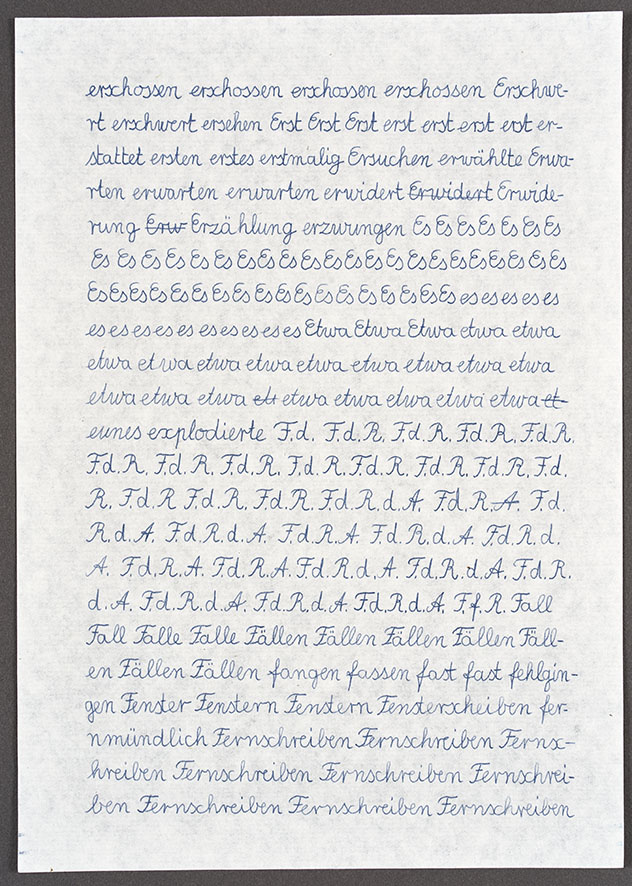 erschossen erschossen erschossen erschossen Erschwe-
rt erschwert ersehen Erst Erst Erst erst erst erst erst er-
stattet ersten erstes erstmalig Ersuchen erwählte Erwa-
rten erwarten erwarten erwidert Erwidert Erwide-
rung Erw Erzählung erzwungen Es Es Es Es Es Es Es
Es Es Es Es Es Es Es Es Es Es Es Es Es Es Es Es Es Es Es Es Es Es
Es Es Es Es Es Es Es Es Es Es Es Es Es Es Es Es Es Es es es es es es
es es es es es es es es es es Etwa Etwa Etwa etwa etwa
etwa etwa etwa etwa etwa etwa etwa etwa etwa
etwa etwa etwa ett etwa etwa etwa etwa etwa et-
eunes explodierte F.d. F.d.R. F.d.R. F.d.R. F.d.R.
F.d.R. F.d.R. F.d.R. F.d.R. F.d.R. F.d.R. F.d.R. F.d.
R. F.d.R F.d.R. F.d.R. F.d.R.d.A. F.d.R.A. F.d.
R.d.A. F.d.R.d.A. F.d.R.A. F.d.R.d.A. F.d.R.d.
A. F.d.R.A. F.d.R.A. F.d.R.d.A. F.d.R.d.A. F.d.R.
d.A. F.d.R.d.A. F.d.R.d.A. F.d.R.d.A. F.f.R. Fall
Fall Falle Falle Fällen Fällen Fällen Fällen Fäll-
en Fällen Fällen fangen fassen fast fast fehlgin-
gen Fenster Fenstern Fenstern Fensterscheiben fer-
nmündlich Fernschreiben Fernschreiben Fernsc-
hreiben Fernschreiben Fernschreiben Fernschrei-
ben Fernschreiben Fernschreiben Fernschreiben